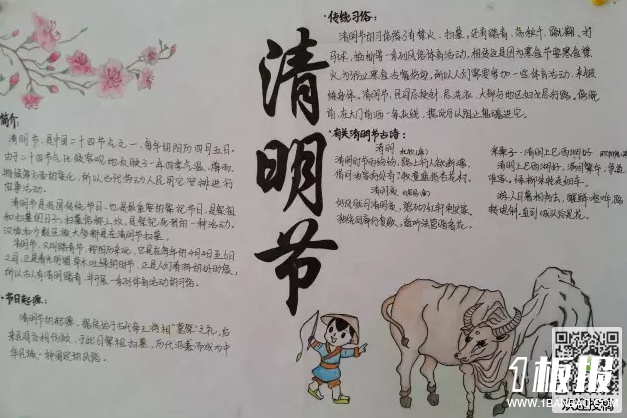 简介
清明节,是中国二十四节气之一,每年的阳历四月五日。
由于二十四节气比较客观地反映了一年四季气温、降雨、
物候等方面的变化,所以古代劳动人民用它安排进行
农事活动。
清明节是我国传统节日,也是最重要的祭祀节日,是祭祖
和扫墓的日子。扫墓俗称上坟,是祭祀死者的一种活动。
汉族和少数民族大多都是在清明节扫墓。
清明节,又叫踏青节,按阳历来说,它是在每年的4月4日至6日
之间,正是春光明媚草木吐绿的时节,正是人们春游的好时候,
所以古人有清明踏青,并开展一系列体育活动的习俗。
·节日起源:
清明节的起源,据传始于古代帝王将相"墓祭"之礼,后
来民间亦相仿效,于此日祭祖扫墓,历代沿袭而成为中
华民族一种固定的风俗。
清明节
·传统习俗:
清明节的习俗除了有禁火、扫墓,还有踏青、荡秋千、蹴鞠、打
马球、插柳等一系列风俗体育活动。相传这是因为寒食节要寒食禁
火,为防止寒食冷餐伤身,所以人们需要参加一些体育活动,来锻
炼身体。清明节,民间忌使针,忌洗衣,大部分地区妇女忌行路。傍晚
前,在大门前洒一条灰线,据说可以阻止鬼魂进宅。
·有关清明节古诗:
清明 杜牧(唐)
清明时节雨纷纷,路上行人欲断魂。
借问酒家何处有?牧童遥指杏花村。
清明上巳西湖好
清明上巳西湖好,满目繁华。争道
谁家,绿柳朱轮走钿车。
游人日暮相将去,醒醉喧哗。路
转堤斜,直到城头总是花。
1板报
WWW.1BANBAO.COM